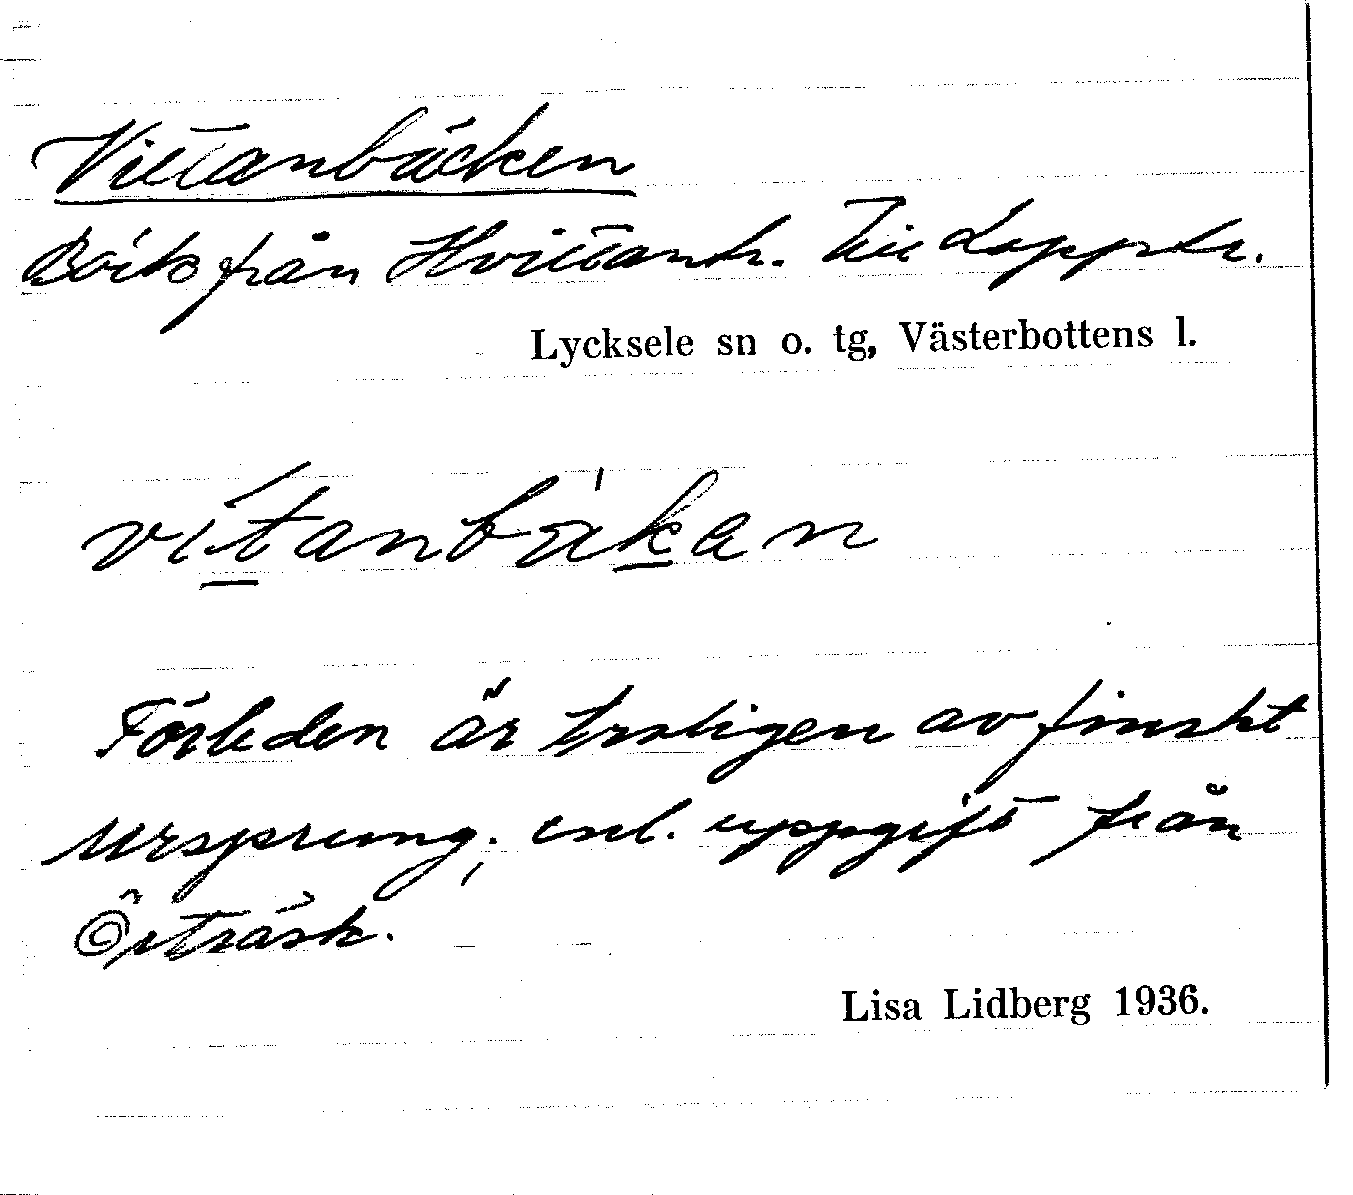 Vittanbäcken
Bäck från Hvittantr. Till Lapptr.
Lycksele sn o. tg, Västerbottens l.
vìtanbä̀kan
Förleden är troligen av finskt
ursprung; enl. uppgift från
Örträsk.
Lisa Lidberg 1936.